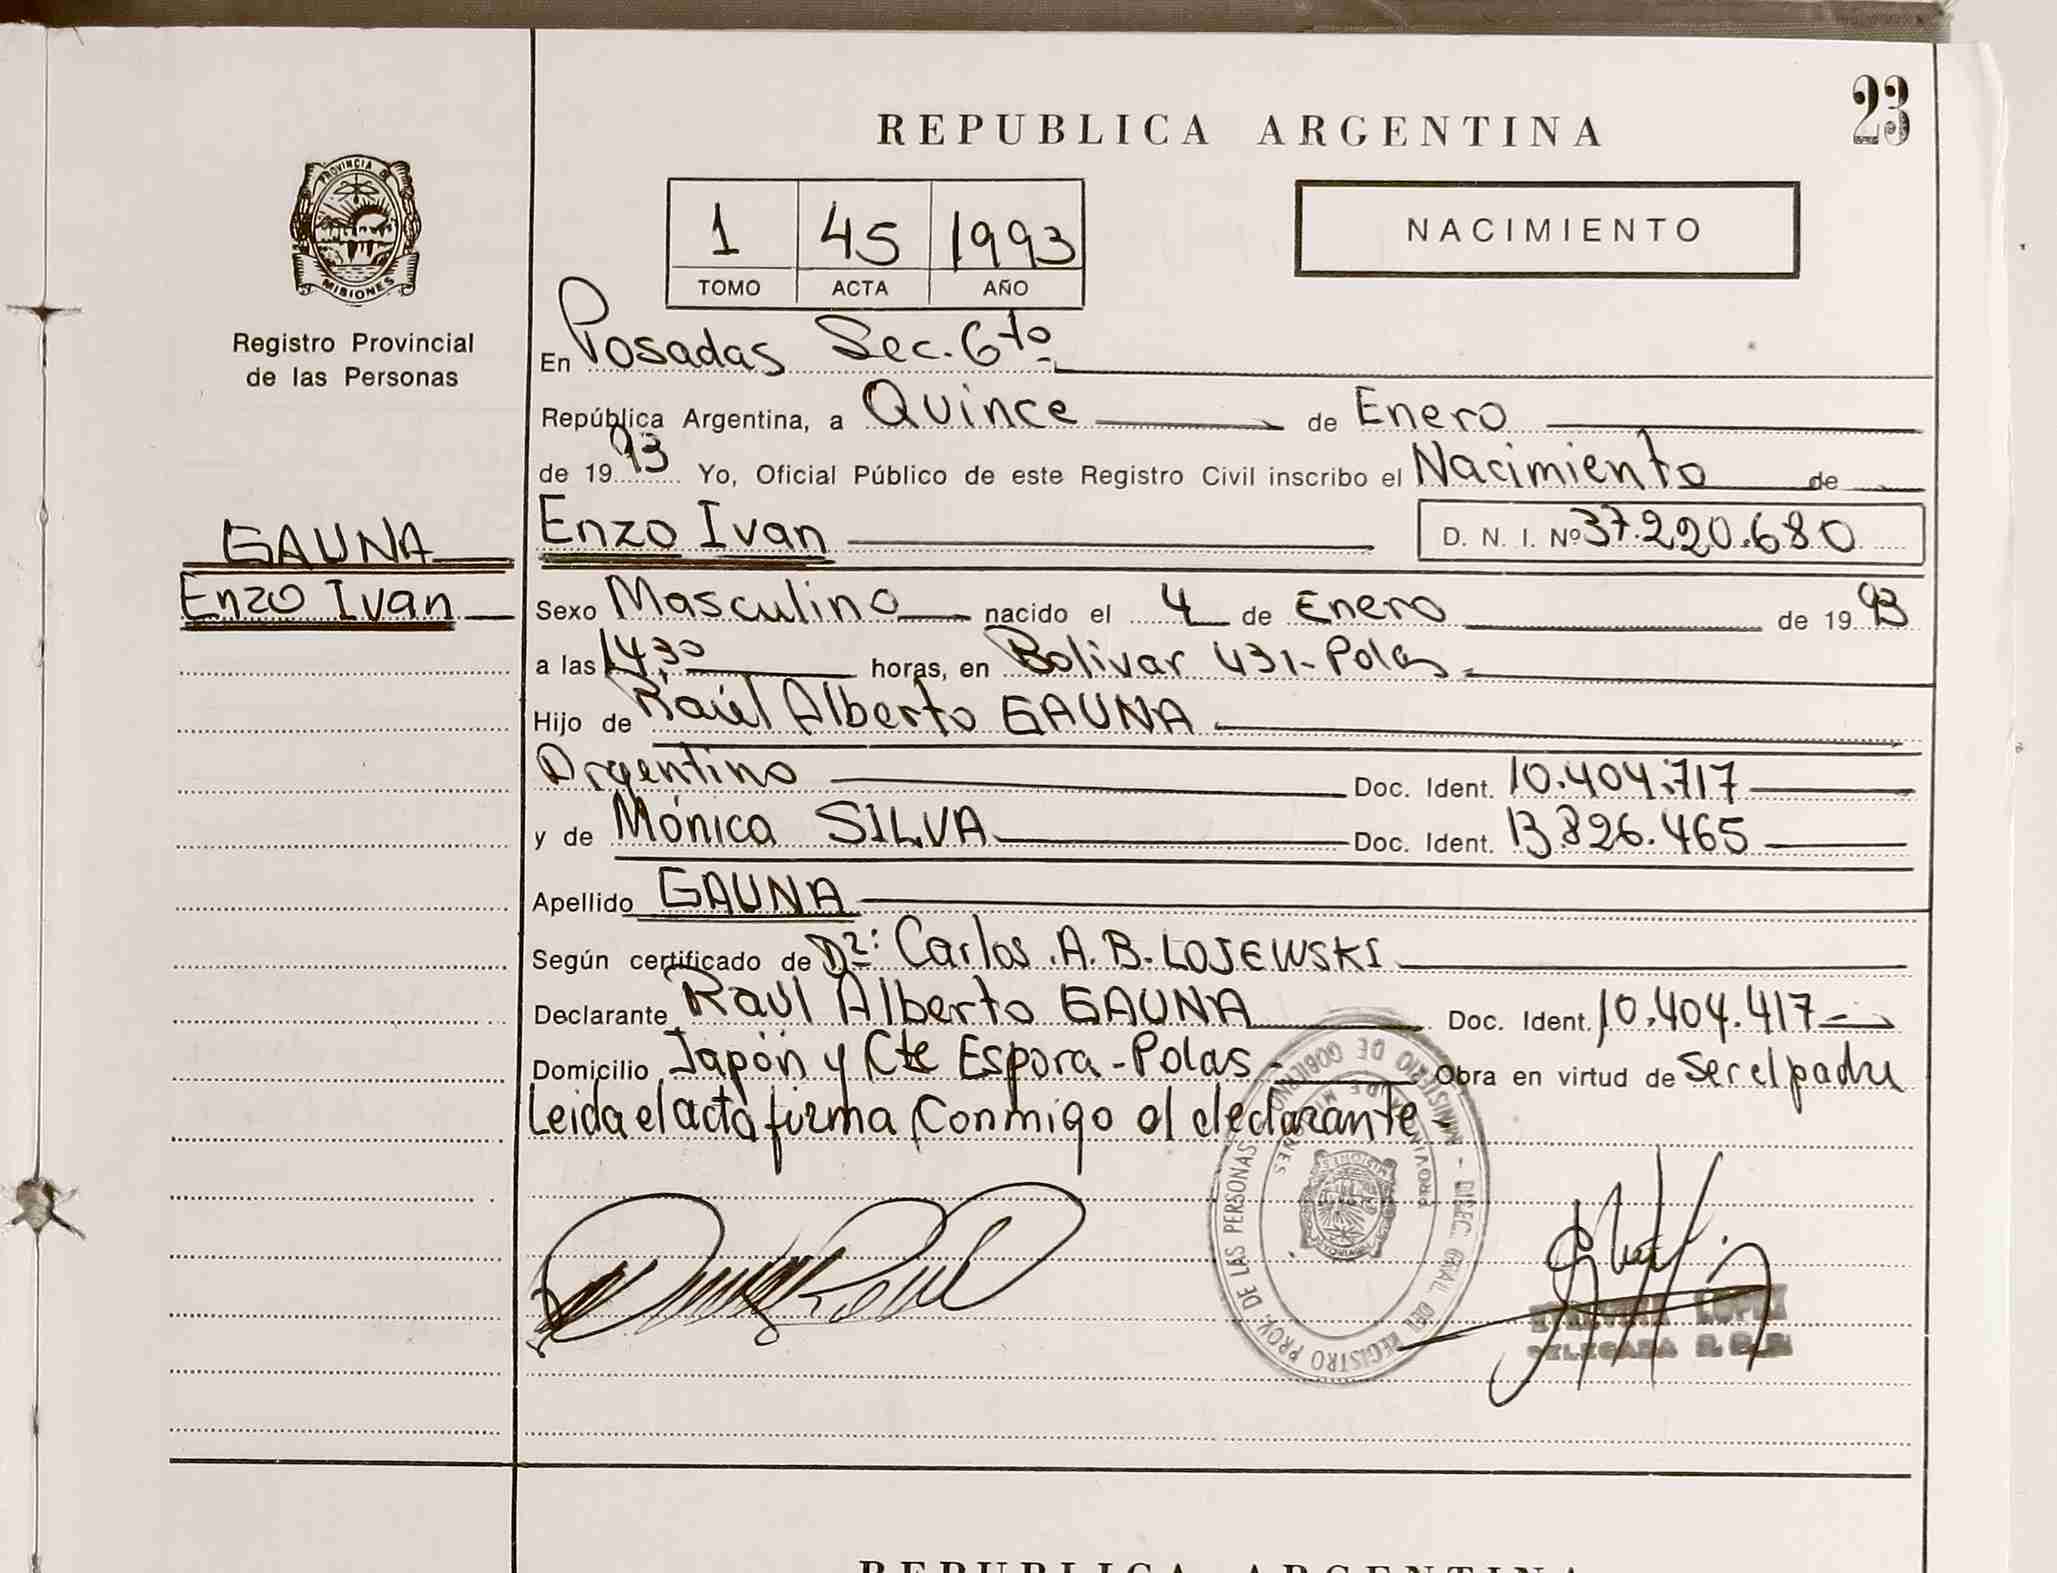 REPUBLICA ARGENTINA
23
PROVINCIA DE
MISIONES
Registro Provincial
de las Personas
1 45 1993
TOMO ACTA AÑO
NACIMIENTO
En Posadas Sec. 6to
República Argentina, a Quince de Enero
de 1993 Yo, Oficial Público de este Registro Civil inscribo el Nacimiento de
GAUNA
Enzo Ivan
Enzo Ivan D. N. I. Nº 37.220.680
Sexo Masculino nacido el 4 de Enero de 1993
a las 14,30 horas, en Bolivar 431-Pdas
Hijo de Raúl Alberto GAUNA
Argentino Doc. Ident. 10.404.717
y de Mónica SILVA Doc. Ident. 13.826.465
Apellido GAUNA
Según certificado de Dr: Carlos A. B. LOJEWSKI
Declarante Raul Alberto GAUNA Doc. Ident. 10.404.417
Domicilio Japón y Cte Espora - Pdas - Obra en virtud de ser el padre
Leida el acta firma conmigo el declarante -
MINISTERIO DE GOBIERNO - DIREC. GRAL. DEL REGISTRO PROV. DE LAS PERSONAS
PROVINCIA DE MISIONES
LOPEZ
DELEGADA
REPUBLICA ARGENTINA